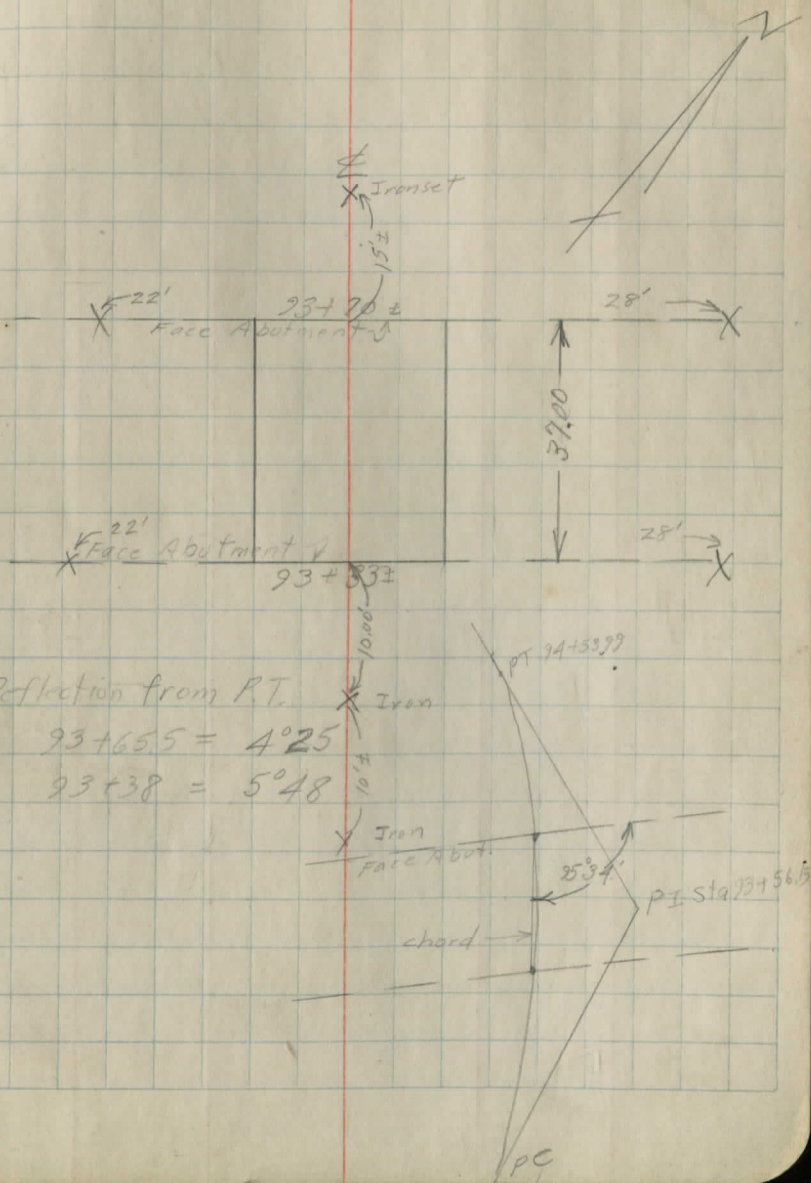 N
℄
Iron set
15'±
22'
93+70 ±
28'
Face Abutment
37.00
22'
Face Abutment
28'
93+33±
10.00'
PT 94+53.99
Deflection from P.T.
Iron
93+65.5 = 4°25
93+38 = 5°48
10'±
Iron
Face Abut.
95°34'
PI Sta 93+56.5
chord
PC